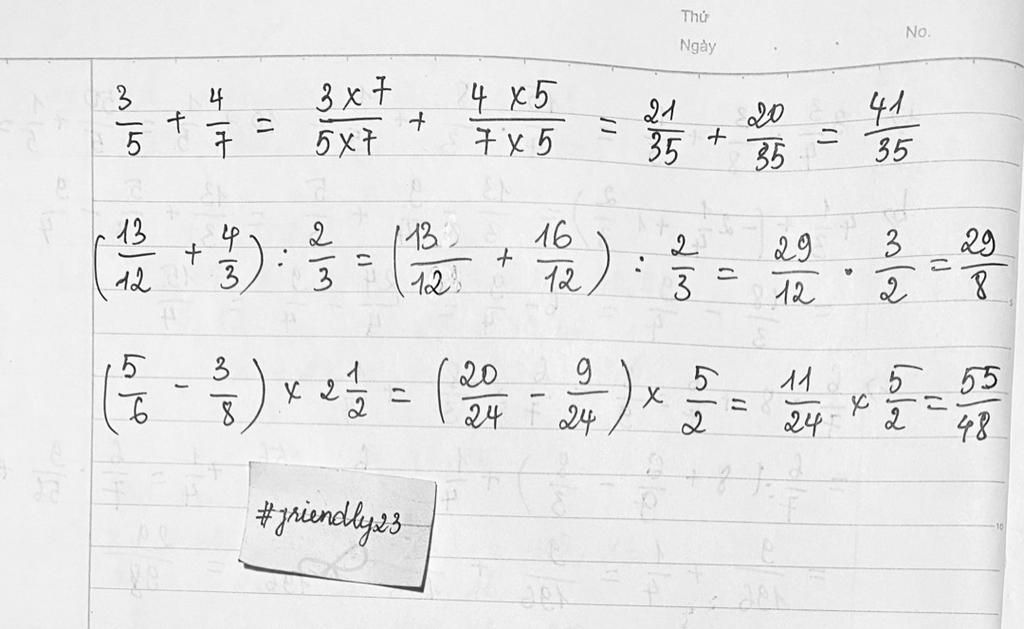 Thứ
Ngày
No.
3/5 + 4/7 = 3 x 7/5 x 7 + 4 x 5/7 x 5 = 21/35 + 20/35 = 41/35
(13/12 + 4/3) : 2/3 = (13/12 + 16/12) : 2/3 = 29/12 · 3/2 = 29/8
(5/6 - 3/8) x 2 1/2 = (20/24 - 9/24) x 5/2 = 11/24 x 5/2 = 55/48
#friendly23
10